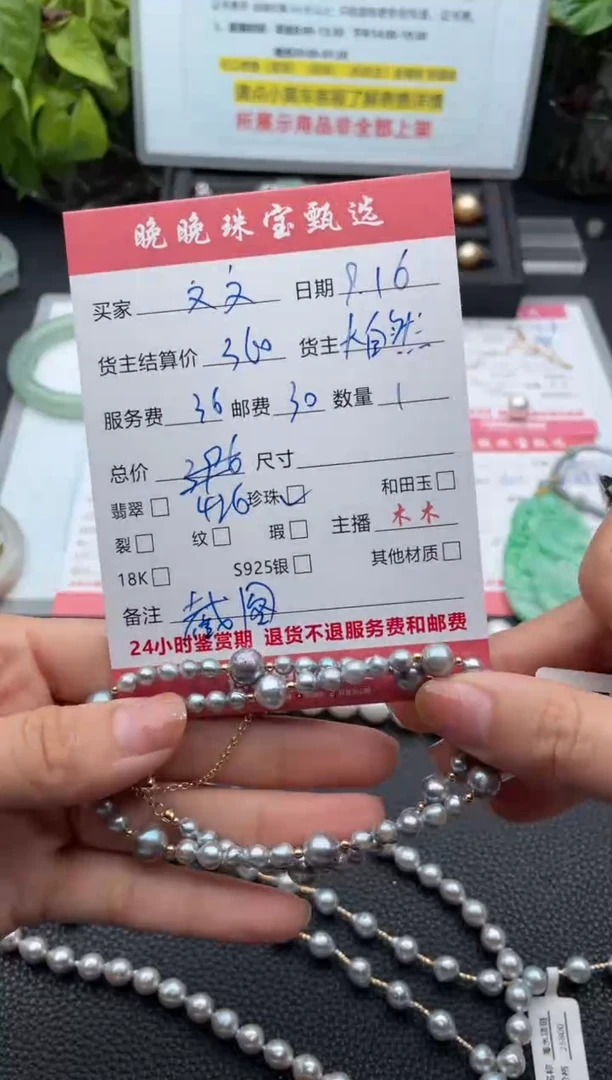 请点小黄车客服了解售后详情
所展示商品非全部上架
晚晚珠宝甄选
买家 文文 日期 9.16
货主结算价 360 货主 大自然
服务费 36 邮费 30 数量 1
总价 396 尺寸
426
翡翠 珍珠 和田玉
裂 纹 瑕 主播 木木
18K S925银 其他材质
备注 截图
24小时鉴赏期 退货不退服务费和邮费